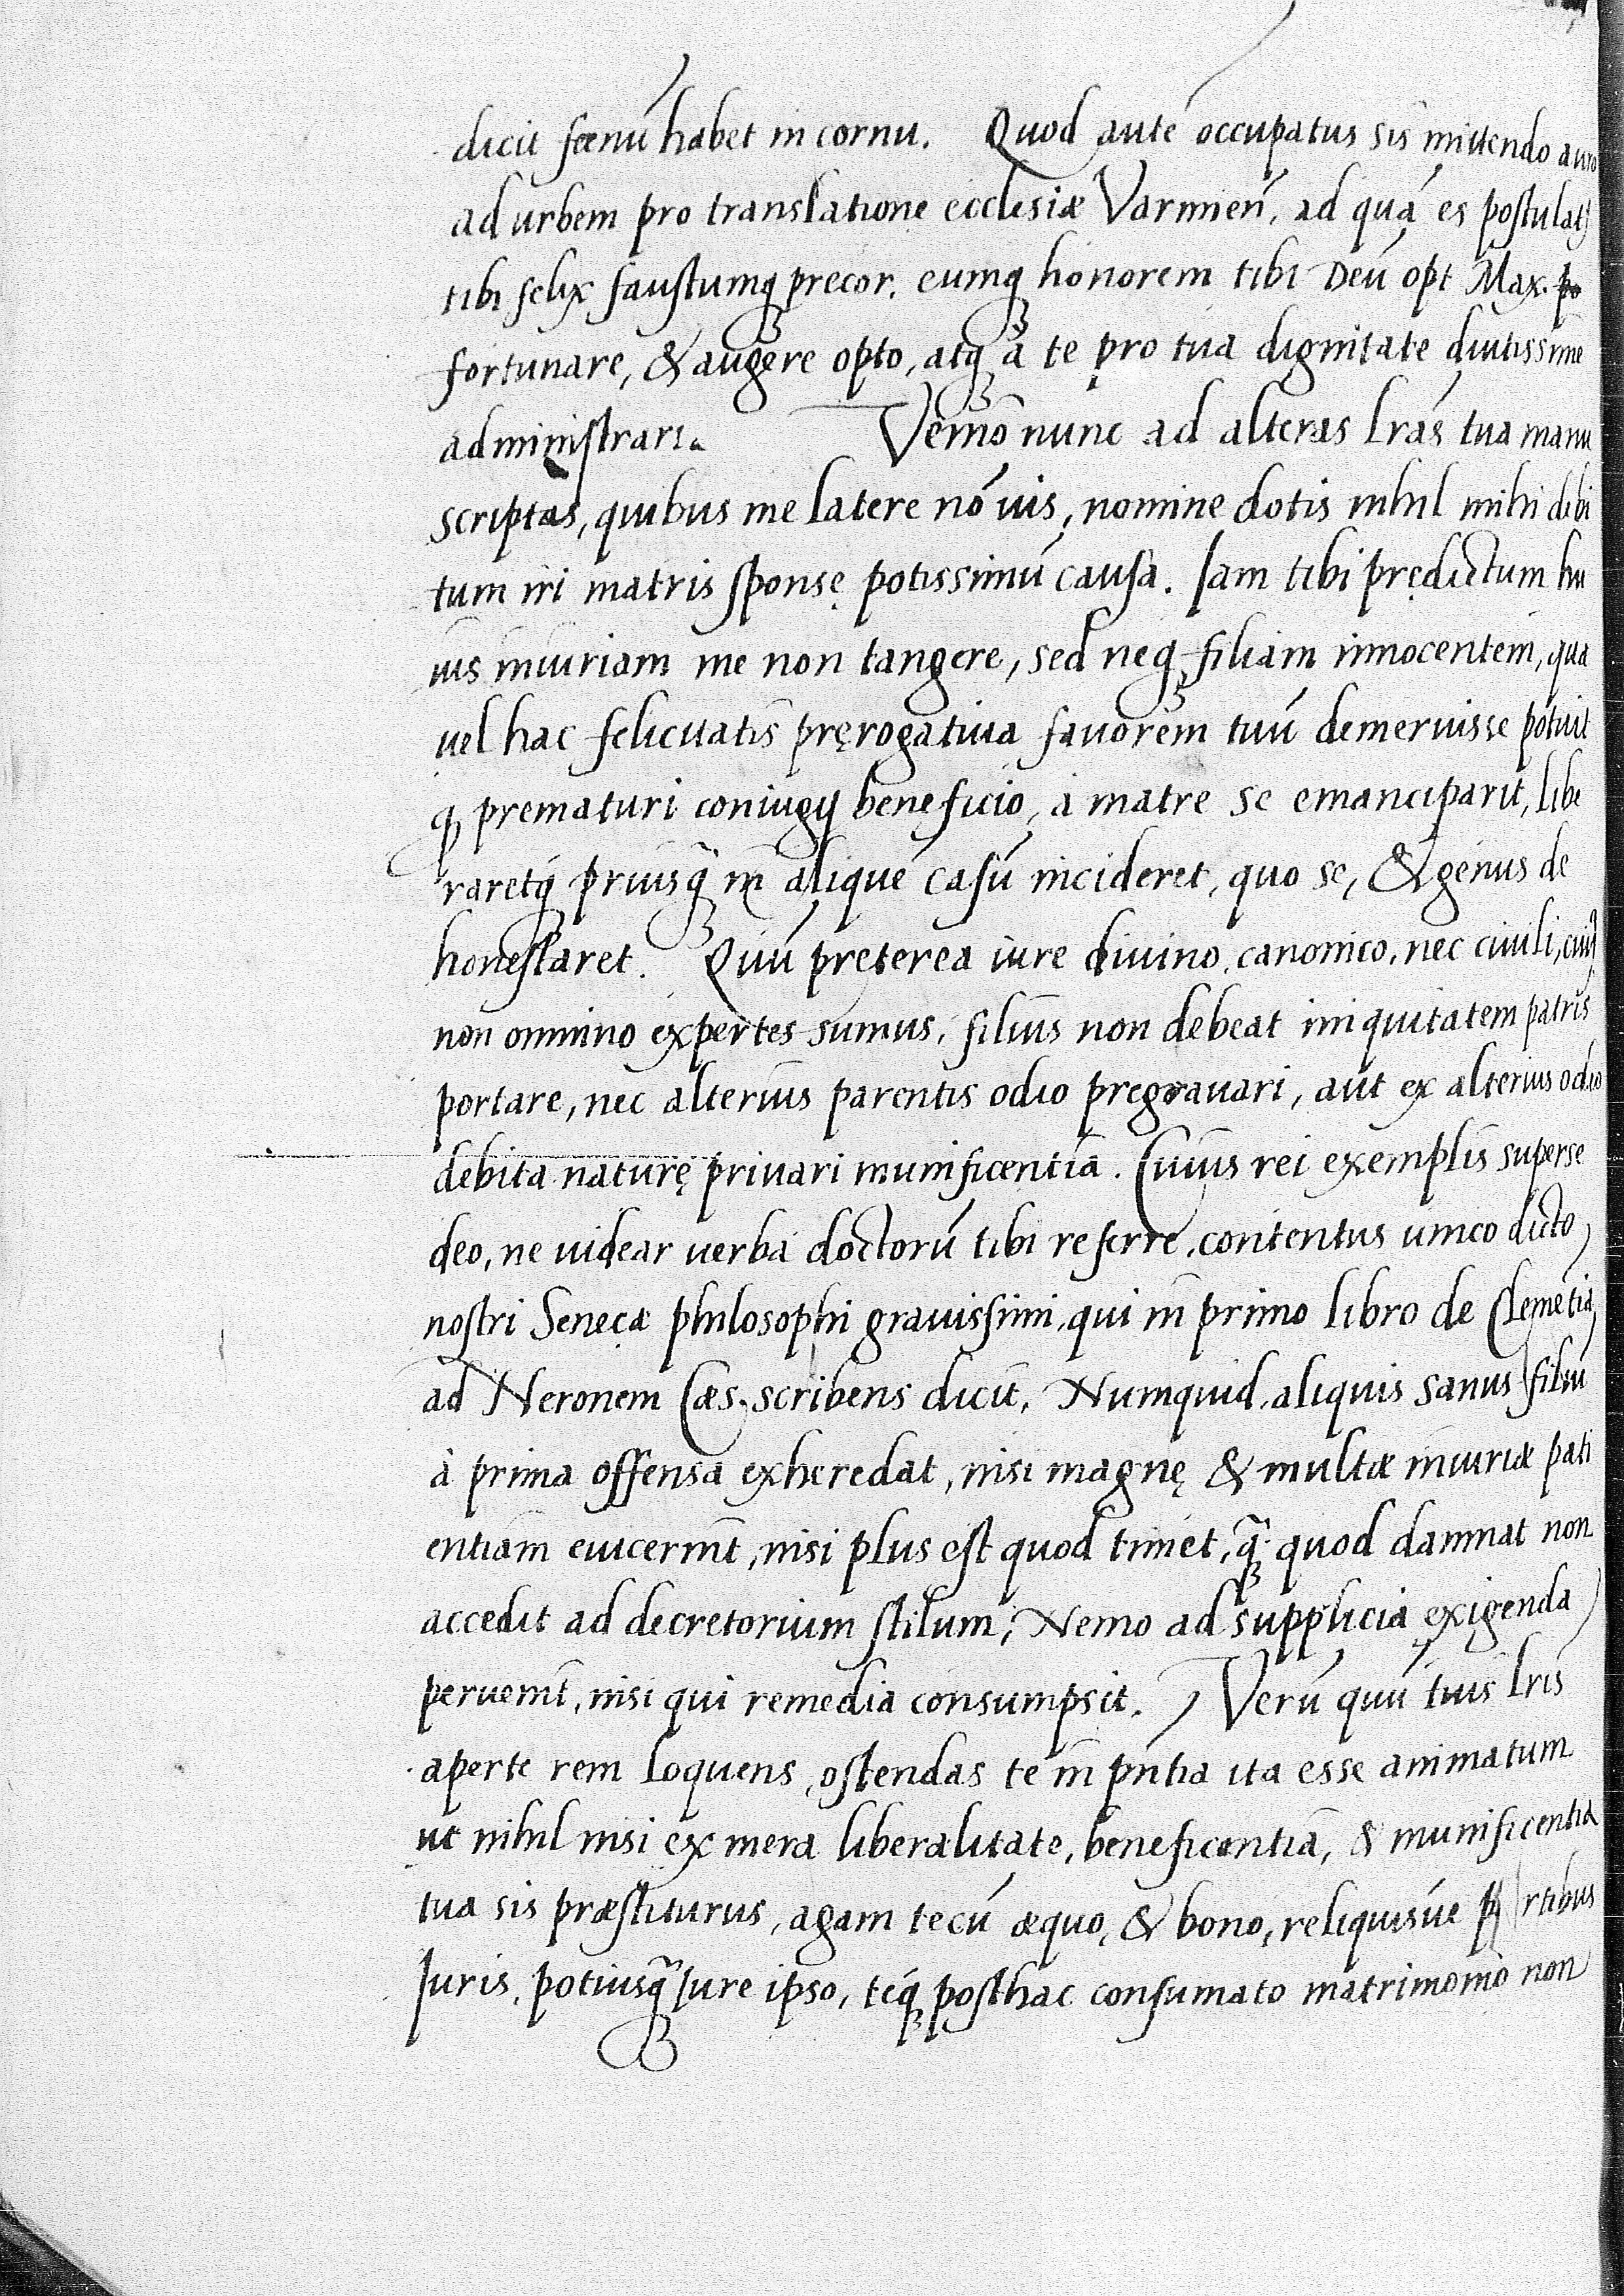 dicit fœnũ habet in cornu. Quod autẽ occupatus sis mittendo auro
ad urbem pro translatione ecclesiæ Varmieñ, ad quã es postulatꝯ
tibi felix faustumqꝫ precor, eumqꝫ honorem tibi Deũ opt Max.
fortunare, & augere opto, atqꝫ à te pro tua dignitate diutissime
administrari.
Venio nunc ad alteras lr̃as tua manu
scriptas, quibus me latere nõ uis, nomine dotis nihil mihi debi
tum iri matris sponsę potissimũ causa. Iam tibi prędictum hu
ius iniuriam me non tangere, sed neqꝫ filiam innocentem, qua
uel hac felicitatis pręrogatiua fauorem tuũ demeruisse potuit
qꝫ prematuri coniugij beneficio, à matre se emanciparit, libe
raretqꝫ priusqꝫ̃ in aliquẽ casũ incideret, quo se, & genus de
honestaret. Quũ preterea iure diuino, canonico, nec ciuili, cuiꝯ
non omnino expertes sumus, filius non debeat iniquitatem patris
portare, nec alterius parentis odio pregrauari, aut ex alterius odio
debita naturę priuari munificentia. Cuius rei exemplis superse
deo, ne uidear uerba doctorũ tibi referre, contentus unico dicto
nostri Senecæ philosophi grauissimi, qui in primo libro de Clemẽtia
ad Neronem Cæs. scribens dicit, Numquid aliquis sanus filiũ
à prima offensa exheredat, nisi magnę & multæ iniuriæ pati
entiam euicerint, nisi plus est quod timet, qꝫ̃ quod damnat non
accedit ad decretorium stilum, Nemo ad supplicia exigenda
peruenit, nisi qui remedia consumpsit. Verũ quũ tuis lr̃is
aperte rem loquens, ostendas te in pñtia ita esse animatum
ut nihil nisi ex mera liberalitate, beneficentia, & munificentia
tua sis præstiturus, agam tecũ æquo, & bono, reliquisúe rtibus
Iuris, potiusqꝫ̃ Iure ipso, teqꝫ posthac consumato matrimonio non